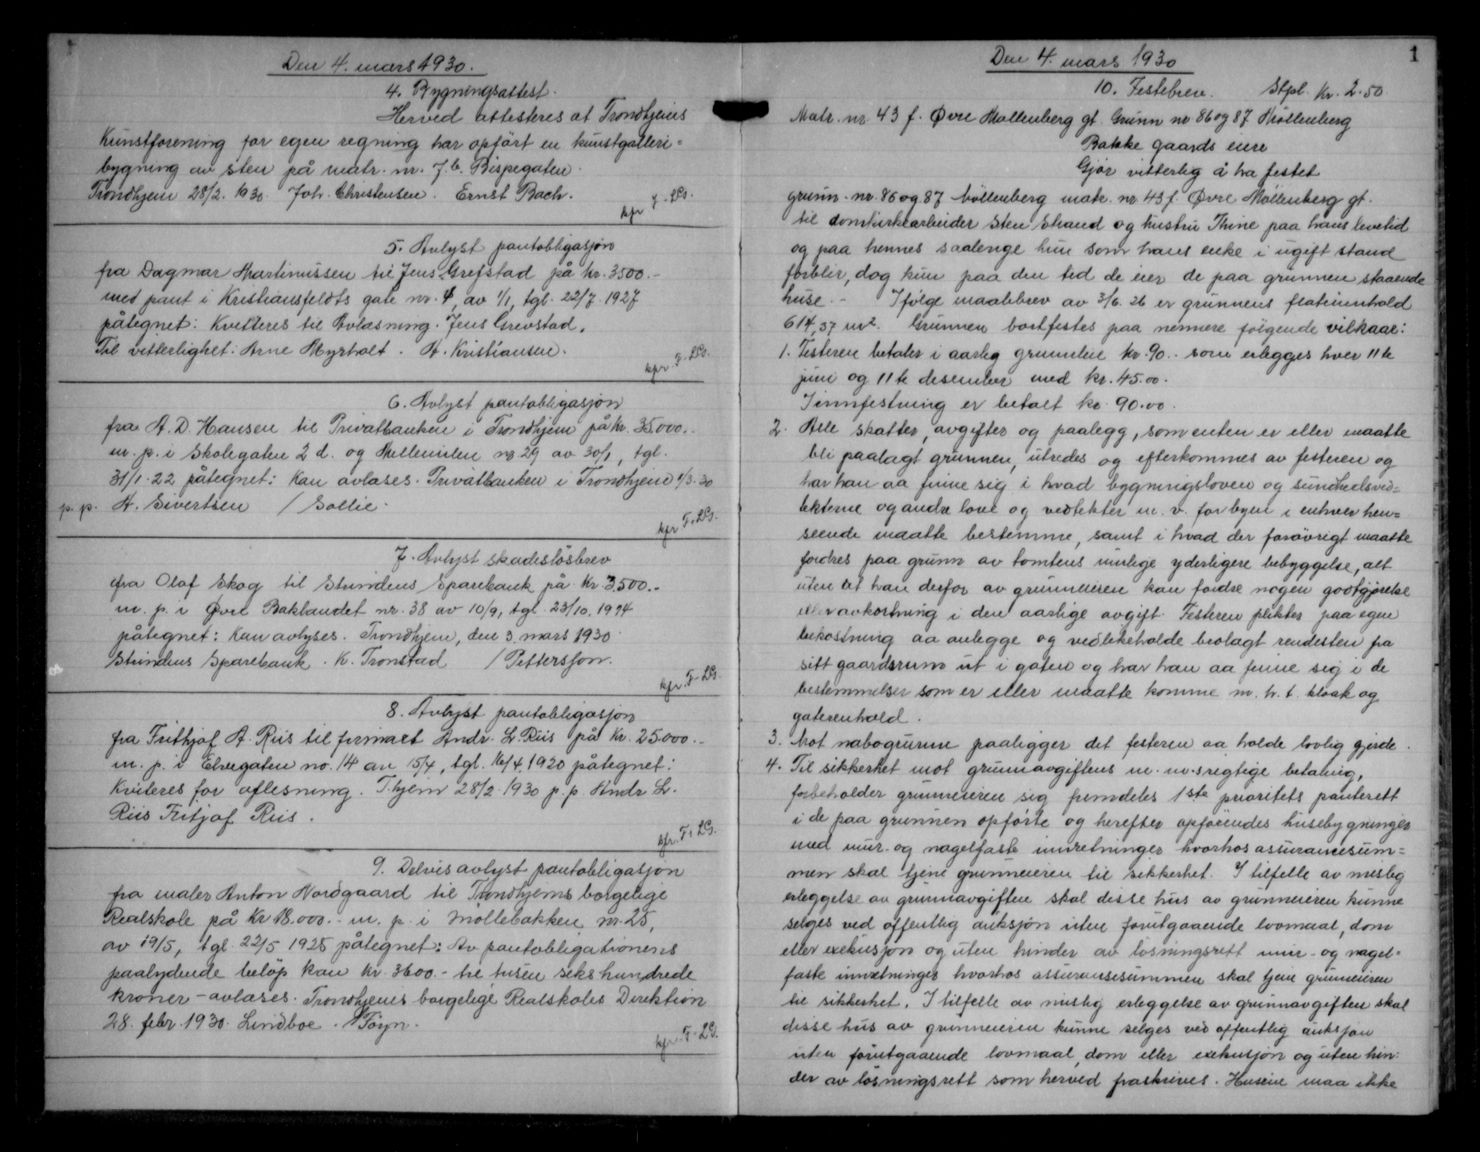 Den 4. mars 1930.
4. Bygningsattest.
Herved attesteres at Trondhjems
Kunstforening for egen regning har opført en kunstgalleri-
bygning av sten på matr. nr. 7b Bispegaten.
Trondhjem 28/2 1930. Joh. Christensen. Ernst Bach.
5. Avlyst pantobligasjon
fra Dagmar Martinussen til Jens Grefstad på kr. 3500.-
med pant i Kristiansfeldts gate nr. 4, av 1/1, tgl. 22/7 1927
påtegnet: Kvitteres til Avlæsning. Jens Grevstad.
Til vitterlighet: Arne Myrholt. A. Kristiansen.
6. Avlyst pantobligasjon
fra A. D. Hansen til Privatbanken i Trondhjem på kr. 35000.-
m. p. i Skolegaten 2 d. og Mellemilen nr 29 av 30/1, tgl.
31/1-22 påtegnet: Kan avlæses. Privatbanken i Trondhjem 1/3-30
p. p. H. Sivertsen / Sollie.
7. Avlyst skadesløsbrev
fra Olaf Skog til Strindens Sparebank på Kr. 3500.-
m. p. i Øvre Baklandet nr. 38 av 10/9, tgl. 23/10. 1924
påtegnet: Kan avlyses. Trondhjem, den 3. mars 1930.
Strindens Sparebank. K. Tronstad / Pettersson.
8. Avlyst pantobligasjon
fra Frithjof A. Riis til firmaet Andr. L. Riis på Kr. 25000.-
m. p. i Elvegaten no. 14 av 15/4, tgl. 16/4 1920 påtegnet:
Kviteres for aflesning. T.hjem 28/2-1930 p. p. Andr L.
Riis Fritjof Riis.
9. Delvis avlyst pantobligasjon
fra maler Anton Nordgaard til Trondhjems borgelige
Realskole på Kr 18.000.- m. p. i Møllebakken nr. 25,
av 19/5, tgl. 22/5 1925 påtegnet: Av pantobligationens
paalydende beløp kan Kr. 3600.- tre tusen seks hundrede
kroner - avlæses. Trondhjems borgelige Realskoles Direktion
28. febr. 1930. Lindboe. / Foyn.
Den 4. mars 1930
1
10. Festebrev. Stpl. Kr. 2.50
Matr. nr. 43 f. Øvre Møllenberg gt. Grunn nr 86 og 87 Møllenberg
Bakke gaards eiere
Gjør vitterlig å ha festet
grunn. nr. 86 og 87 Møllenberg matr. nr 43 f. Øvre Møllenberg gt.
til domkirkearbeider Sten Strand og hustru Thine paa hans levetid
og paa hennes saalenge hun som hans enke i ugift stand
forblir, dog kun paa den tid de eier de paa grunnen staaende
huse. - Ifølge maalebrev av 3/6. 26 er grunnens flateinnhold
614,37 m². Grunnen bortfestes paa nermere følgende vilkaar:
1. Festeren betaler i aarlig grunnleie kr. 90.- som erlegges hver 11te
juni og 11te desember med kr. 45.00.
I innfestning er betalt kr. 90.00.
2. Alle skatter, avgifter og paalegg, som enten er eller maatte
bli paalagt grunnen, utredes og efterkommes av festeren og
har han aa finne sig i hvad bygningsloven og sundhedsved-
tekterne og andre love og vedtekter m. v. for byen i enhver hen-
seende maatte bestemme, samt i hvad der forøvrigt maatte
fordres paa grunn av tomtens mulige yderligere bebyggelse, alt
uten at han derfor av grunneieren kan fordre nogen godtgjørelse
eller avkortning i den aarlige avgift. Festeren pliktes paa egen
bekostning aa anlegge og vedlikeholde brolagt rendesten fra
sitt gaardsrum ut i gaten og har han aa finne sig i de
bestemmelser som er eller maatte komme m. h. t. kloak og
gaterenhold.
3. Mot nabogrunne paaligger det festeren aa holde lovlig gjerde.
4. Til sikkerhet mot grunnavgiftens m. m. rigtige betaling,
forbeholder grunneieren sig fremdeles 1ste prioritets panterett
i de paa grunnen opførte og herefter opførendes husebygninger
med mur- og nagelfaste innretninger hvorhos assuransesum-
men skal tjene grunneieren til sikkerhet. I tilfelle av mislig
erleggelse av grunnavgiften skal disse hus av grunneieren kunne
selges ved offentlig auksjon uten forutgaaende lovmaal, dom
eller exekusjon og uten hinder av løsningsrett mur- og nagel-
faste innretninger hvorhos assuransesummen skal tjene grunneieren
til sikkerhet. I tilfelle av mislig erleggelse av grunnavgiften skal
disse hus av grunneieren kunne selges ved offentlig auksjon
uten forutgaaende lovmaal, dom eller exekusjon og uten hin-
der av løsningsrett som herved fraskrives. Husene maa ikke